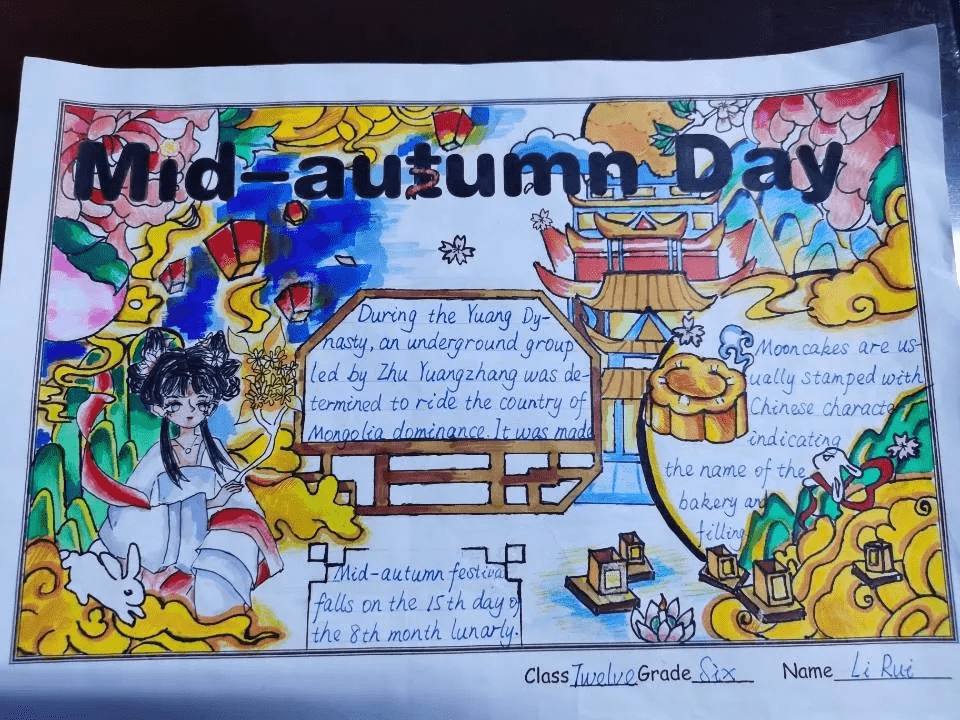 Mid-autumn Day
During the Yuang Dy-
nasty, an underground group
led by Zhu Yuangzhang was de-
termined to ride the country of
Mongolia dominance. It was made
Mooncakes are us-
ually stamped with
Chinese characte
indicating
the name of the
bakery and
filling
Mid-autumn festival
falls on the 15th day of
the 8th month lunarly.
Class Twelve Grade Six Name Li Rui